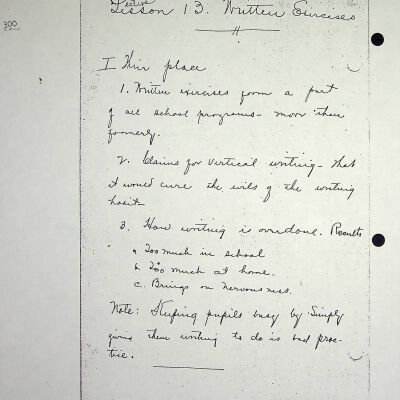 Lecture
Lesson 13. Written Exercises
300
I Their place
1. Written exercises form a part
of all school programs - more than
formerly.
2. Claims for vertical writing - that
it would cure the evils of the writing
habit -
3. How writing is overdone. Results
a Too much in school
b Too much at home.
c. Brings on nervousness.
Note: Keeping pupils busy by simply
giving them writing to do is bad prac-
tice.